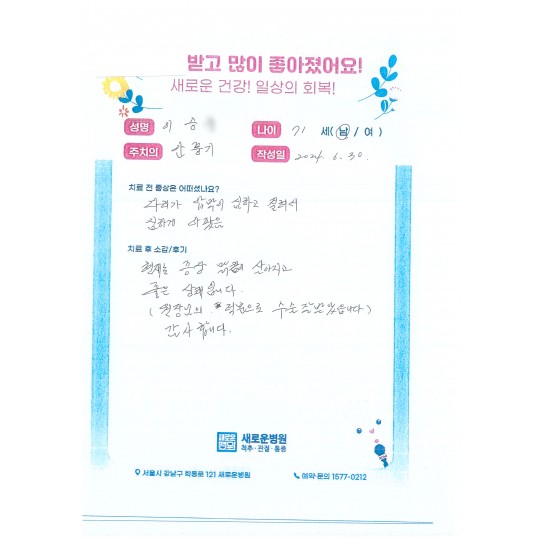 받고 많이 좋아졌어요!
새로운 건강! 일상의 회복!
성명 이 승
나이 71 세(남/여)
주치의 안풍기
작성일 2024. 6. 30.
치료 전 증상은 어떠셨나요?
다리가 심하고 저려서
심하게 아팠음
치료 후 소감/후기
현재는 증상 많이 사라지고
좋은 상태 입니다.
(원장님의 적음으로 수술 잘 받았습니다)
감사합니다.
새로운병원
척추·관절·통증
서울시 강남구 학동로 121 새로운병원
예약·문의 1577-0212